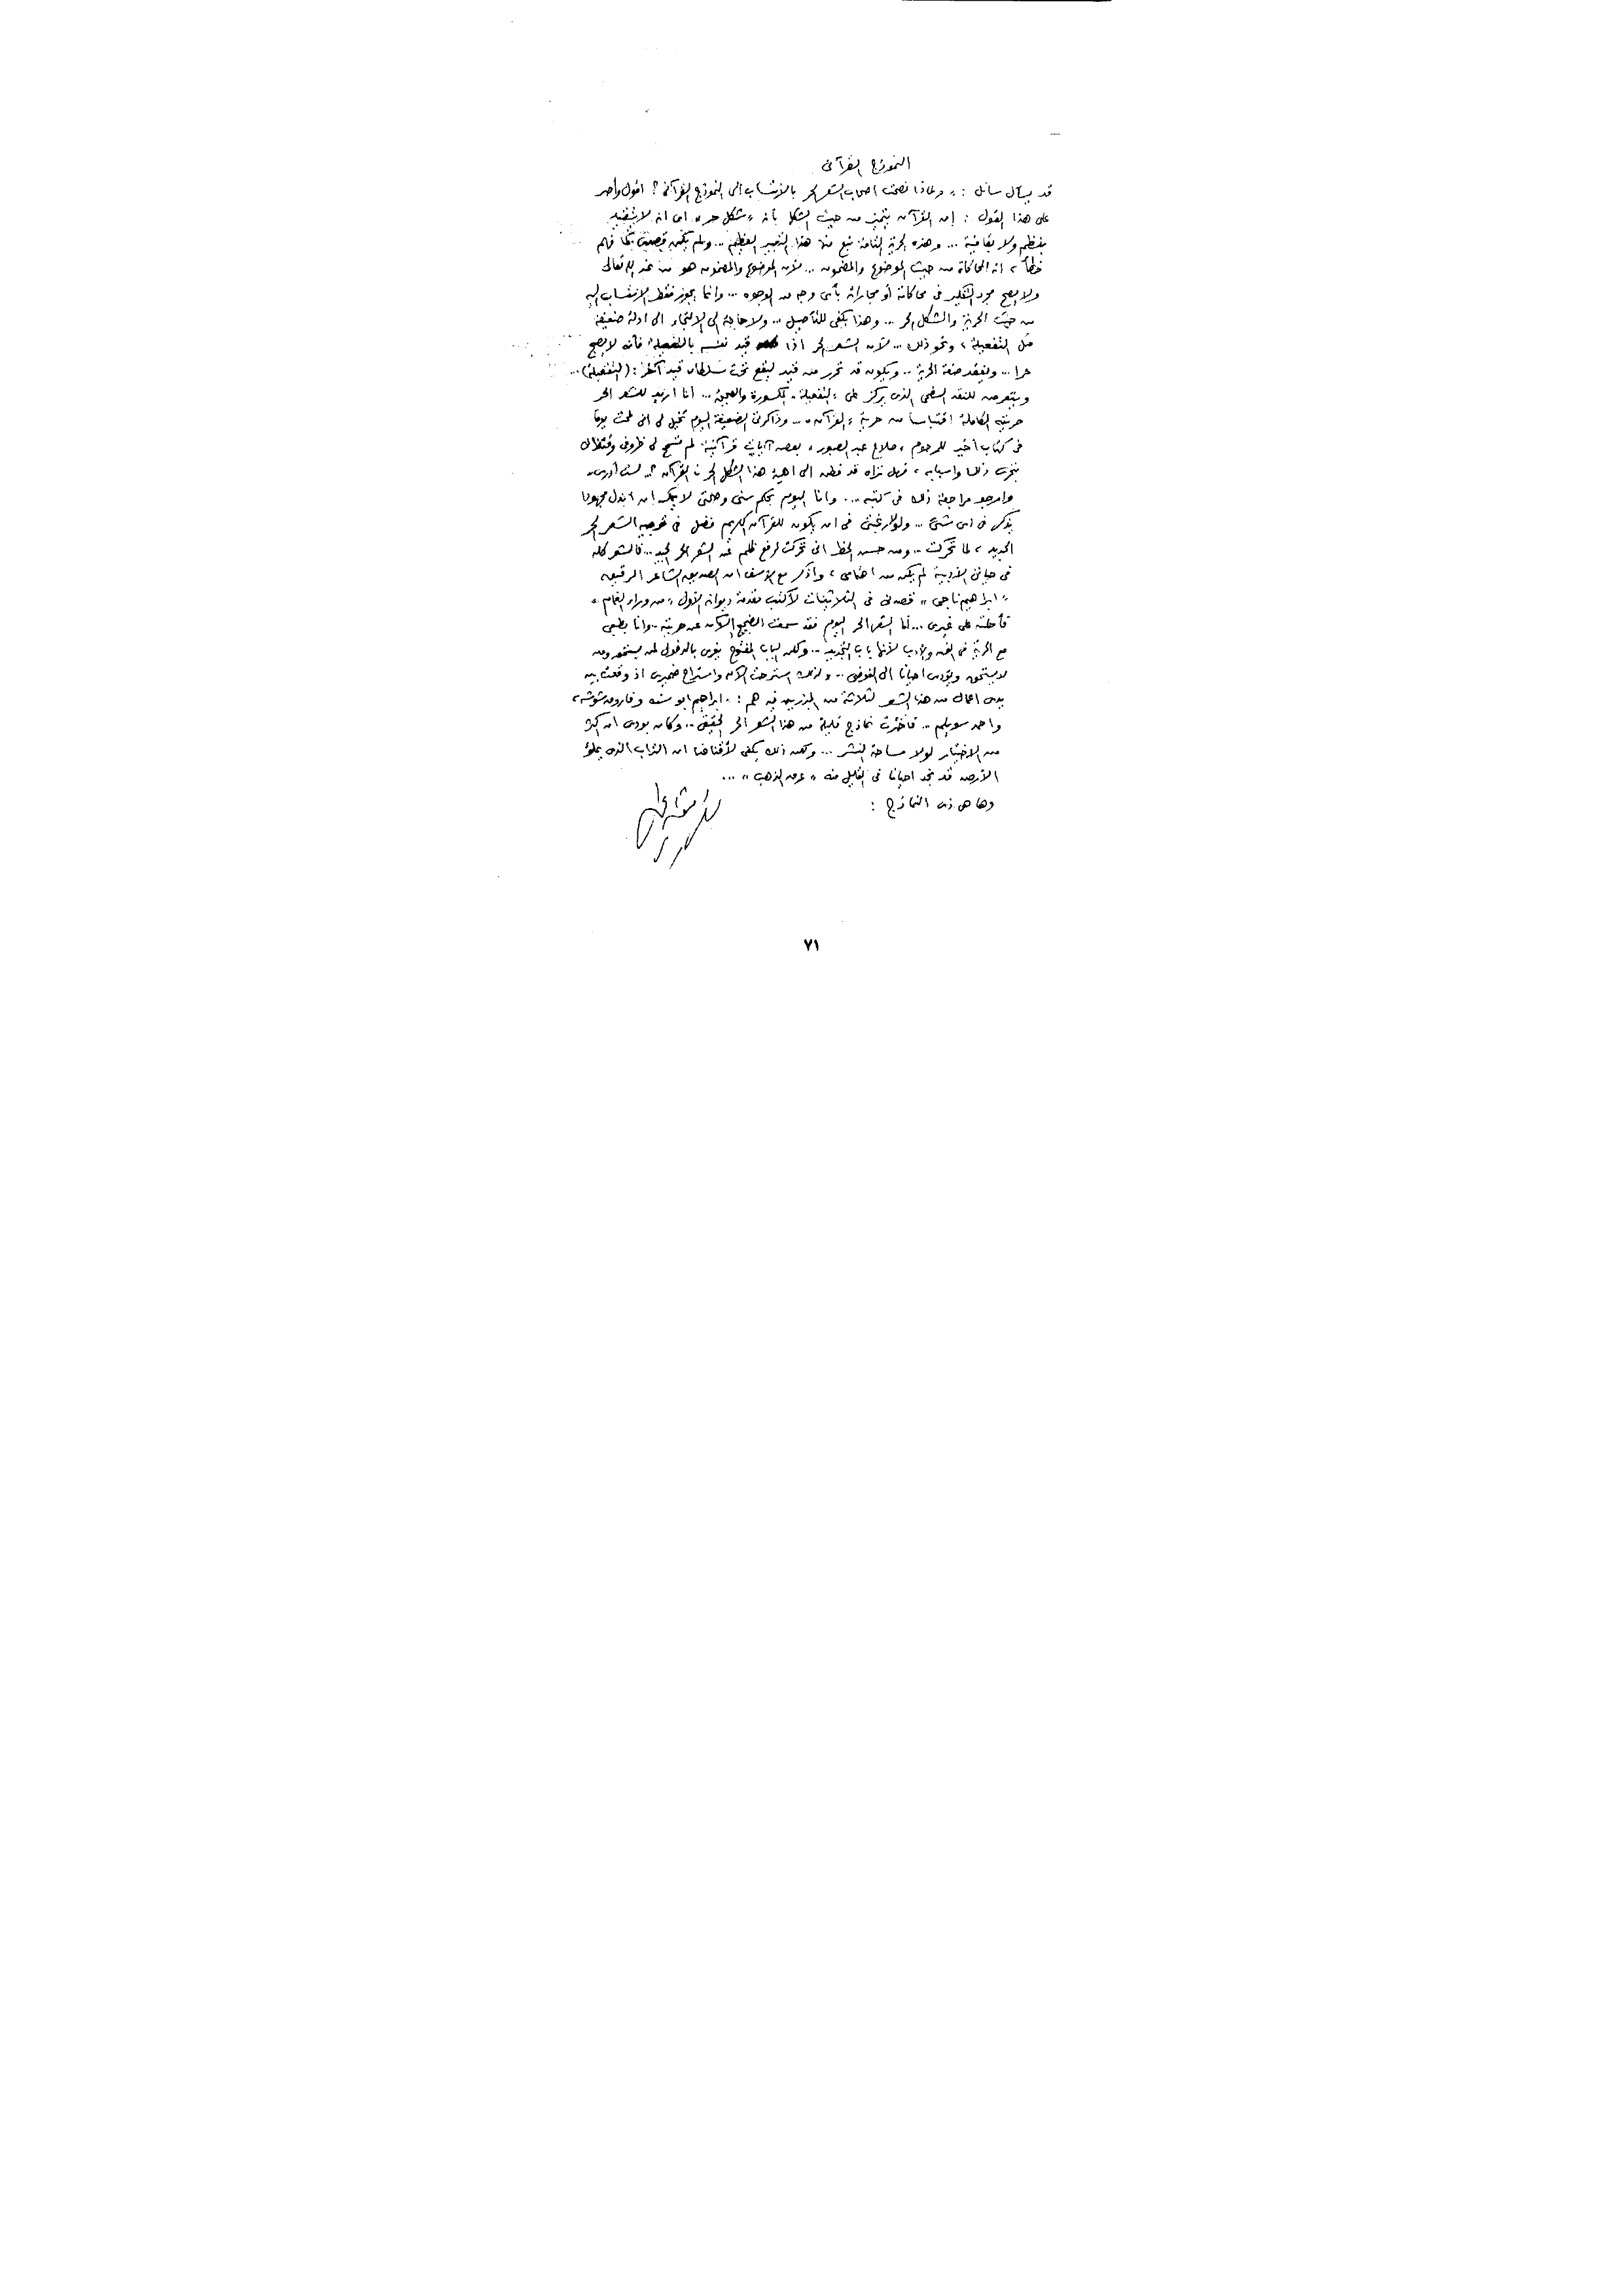 النموذج القرآنى
قد يسأل سائل : « ولماذا نصحت اصحاب الشعر الحر بالانتساب الى النموذج القرآنى ؟ اقول وأصر
على هذا القول : إن القرآن يتميز من حيث الشكل بأنه « شكل حر » اى انه لا يتقيد
بنظم ولا بقافية ... وهذه الحرية التامة نبع منها هذا التعبير العظيم .. ولم يكن قصدى كما فهم
خطأ ، انه المحاكاة من حيث الموضوع والمضمون .. لأن الموضوع والمضمون هو من عند الله تعالى
ولا يصح مجرد التفكير فى محاكاته أو مجاراته بأى وجه من الوجوه ... وانما يجوز فقط الانتساب اليه
من حيث الحرية والشكل الحر ... وهذا يكفى للتأصيل .. ولا حاجة الى الالتجاء الى ادلة ضعيفة
مثل التفعيلة ، ونحو ذلك .. لأن الشعر الحر اذا قيد نفسه بالتفعيلة فأنه لا يصبح
حرا ... ويفقد صفة الحرية .. ويكون قد تحرر من قيد ليقع تحت سلطان قيد آخر : (التفعيلة) ..
ويتعرض للنقد السطحى الذى يركز على « التفعيلة » المكسورة والصحيحة ... أنا اريد للشعر الحر
حريته الكاملة اقتباسا من حرية « القرآن » ... وذاكرتى الضعيفة اليوم تخيل لى انى لمحت يوما
فى كتاب أخير للمرحوم « صلاح عبد الصبور » بعض آيات قرآنية لم تسمح لى ظروفى وقتذاك
بتحرى ذلك واسبابه ، فهل تراه قد فطن الى اهمية هذا الشكل الحر فى القرآن ؟ .. لست أدرى ..
وارجو مراجعة ذلك فى كتبه ... وانا اليوم بحكم سنى وصحتى لا يمكن ان ابذل مجهودا
يذكر فى اى شىء .. ولولا رغبتى فى ان يكون للقرآن الكريم فضل فى توجيه الشعر الحر
الجديد ، لما تحركت .. ومن حسن الحظ انى تحركت لرفع ظلم عن الشعر الحر الجيد .. فالشعر كله
فى حياتى الأدبية لم يكن من اهتمامى ، واذكر مع الأسف ان الصديق الشاعر الرقيق
« ابراهيم ناجى » قصدنى فى الثلاثينات لأكتب مقدمة ديوانه الأول « من وراء الغمام »
فأحلته على غيرى ... أما الشعر الحر اليوم فقد سمعت الضجيج الآن عن حريته .. وانا بطبعى
مع الحرية فى الفن والأدب لأنها باب التجديد .. ولكن الباب المفتوح يغرى بالدخول لمن يستحق ومن
لا يستحق ويؤدى احيانا الى الفوضى .. ولذلك استرحت الآن واستراح ضميرى اذ وقعت بين
يدى اعمال من هذا الشعر لثلاثة من المبرزين فيه هم : « ابراهيم ابو سنه وفاروق شوشه »
واحمد سويلم .. فاخترت نماذج قليلة من هذا الشعر الحر الحقيقى .. وكان بودى ان اكثر
من الاختيار لولا مساحة النشر ... ولكن ذلك يكفى لأقناعنا ان التراب الذى يملؤ
الأرض قد نجد احيانا فى القليل منه « عرق الذهب » ...
وها هى ذى النماذج :
٧١